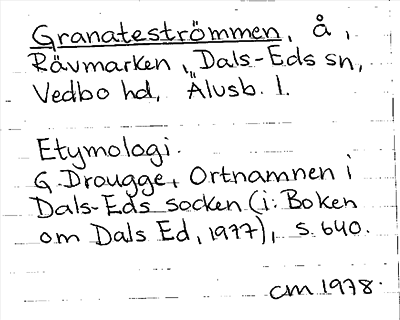 Granateströmmen, å,
Rävmarken, Dals-Eds sn,
Vedbo hd, Älvsb. l.
Etymologi.
G Drougge, Ortnamnen i
Dals-Eds socken (i: Boken
om Dals Ed, 1977), s. 640.
cm 1978.